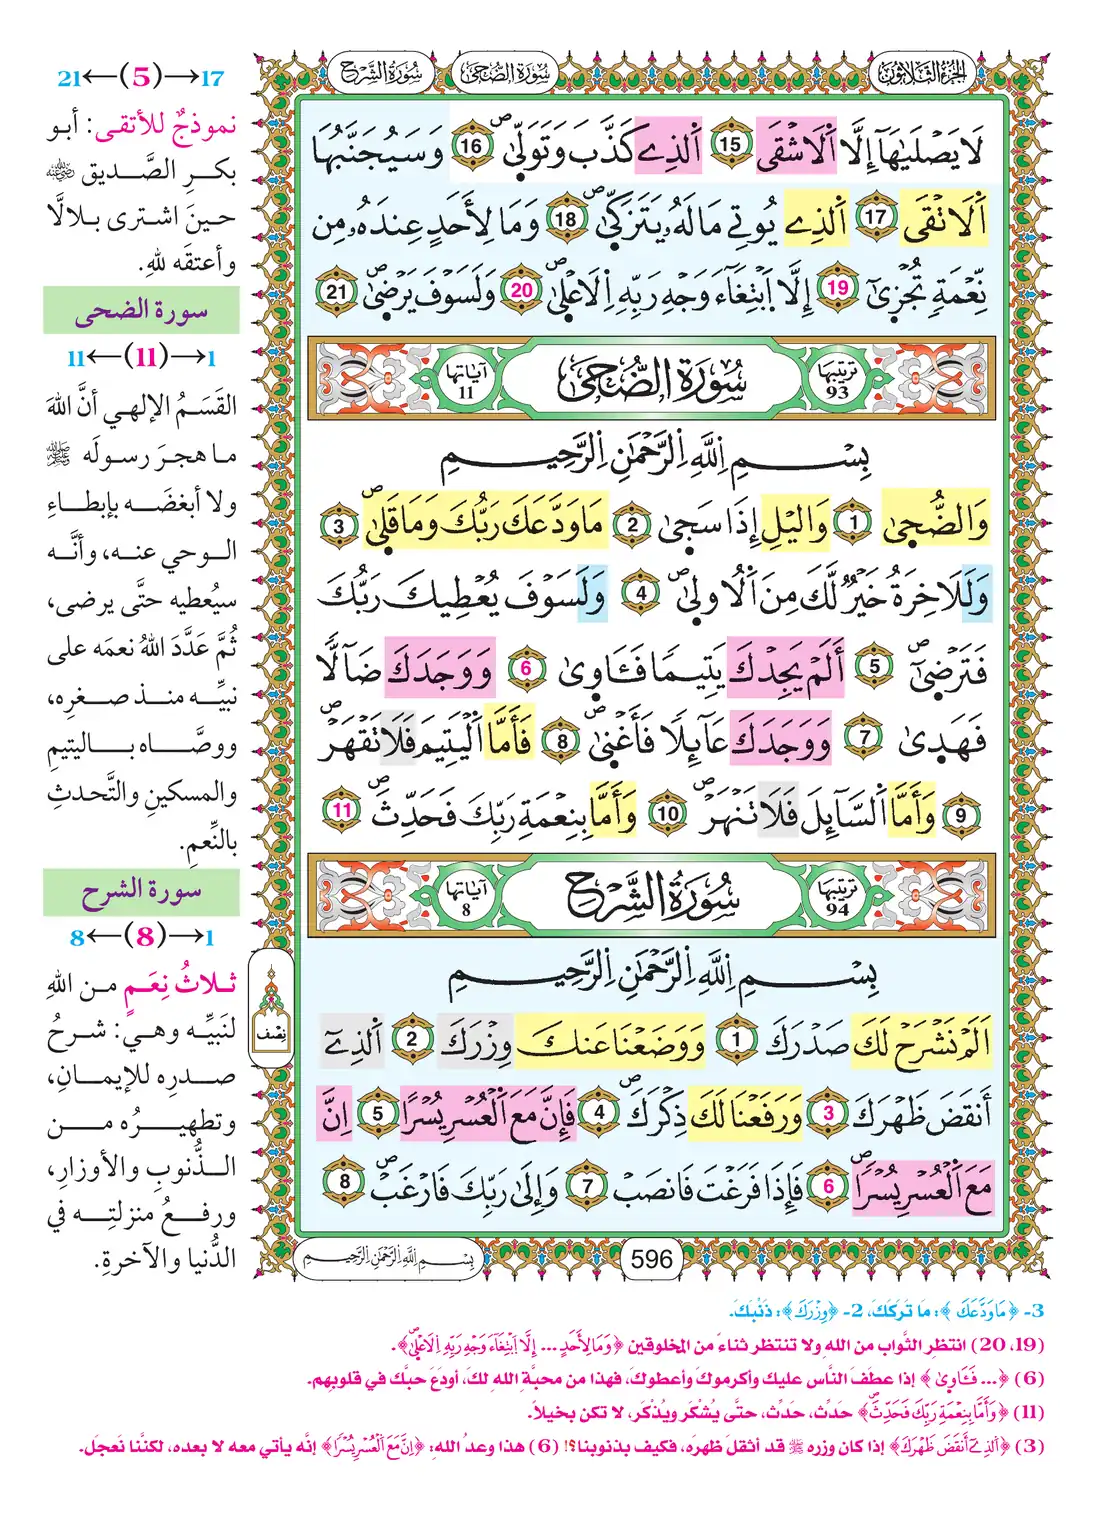 الجزء الثلاثون
سورة الضحى
سورة الشرح
لَا يَصْلَيٰهَآ إِلَّا اَلَاشْقَى 15 اَلذِے كَذَّبَ وَتَوَلّ۪يٰ 16 وَسَيُجَنَّبُهَا
اَلَاتْقَى 17 اَلذِے يُوتِے مَالَهُۥ يَتَزَكّ۪يٰ 18 وَمَا لِأَحَدٍ عِندَهُۥ مِن
نِّعْمَةٖ تُجْز۪يٰٓ 19 إِلَّا اَبْتِغَآءَ وَجْهِ رَبِّهِ اِلَاعْل۪يٰ 20 وَلَسَوْفَ يَرْض۪يٰ 21
ترتيبها 93
سُورَةُ الضُّحَىٰ
آياتها 11
بِسْمِ اِللَّهِ اِلرَّحْمَٰنِ اِلرَّحِيمِ
وَالضُّح۪يٰ 1 وَاليْلِ إِذَا سَج۪يٰ 2 مَا وَدَّعَكَ رَبُّكَ وَمَا قَل۪يٰ 3
وَلَلَاخِرَةُ خَيْرٞ لَّكَ مِنَ اَلُاول۪يٰ 4 وَلَسَوْفَ يُعْطِيكَ رَبُّكَ
فَتَرْض۪يٰٓ 5 أَلَمْ يَجِدْكَ يَتِيمٗا فَـَٔاو۪يٰ 6 وَوَجَدَكَ ضَآلّٗا
فَهَد۪يٰ 7 وَوَجَدَكَ عَآئِلٗا فَأَغْن۪يٰ 8 فَأَمَّا اَلْيَتِيمَ فَلَا تَقْهَرْ
9 وَأَمَّا اَلسَّآئِلَ فَلَا تَنْهَرْ 10 وَأَمَّا بِنِعْمَةِ رَبِّكَ فَحَدِّثْ 11
ترتيبها 94
سُورَةُ الشَّرْحِ
آياتها 8
بِسْمِ اِللَّهِ اِلرَّحْمَٰنِ اِلرَّحِيمِ
أَلَمْ نَشْرَحْ لَكَ صَدْرَكَ 1 وَوَضَعْنَا عَنكَ وِزْرَكَ 2 اَلذِےٓ
أَنقَضَ ظَهْرَكَ 3 وَرَفَعْنَا لَكَ ذِكْرَكَ 4 فَإِنَّ مَعَ اَلْعُسْرِ يُسْراً 5 اِنَّ
مَعَ اَلْعُسْرِ يُسْراٗ 6 فَإِذَا فَرَغْتَ فَانصَبْ 7 وَإِلَىٰ رَبِّكَ فَارْغَب 8
596
بِسْمِ اِللَّهِ اِلرَّحْمَٰنِ اِلرَّحِيمِ
نِصْف
17→(5)←21
نموذجٌ للأتقى: أبو
بكرِ الصَّديق ﵁
حينَ اشترى بلالًا
وأعتقَه للهِ.
سورة الضحى
1→(11)←11
القَسَمُ الإلهي أنَّ اللهَ
ما هجرَ رسولَه ﷺ
ولا أبغضَه بإبطاءِ
الوحي عنه، وأنَّه
سيُعطيه حتَّى يرضى،
ثُمَّ عَدَّدَ اللهُ نعمَه على
نبيِّه منذ صغرِه،
ووصَّاه باليتيمِ
والمسكينِ والتَّحدثِ
بالنِّعمِ.
سورة الشرح
1→(8)←8
ثلاثُ نِعَمٍ من اللهِ
لنَبيِّه وهي: شرحُ
صدرِه للإيمانِ،
وتطهيرُه من
الذُّنوبِ والأوزارِ،
ورفعُ منزلتِه في
الدُّنيا والآخرةِ.
3- ﴿مَا وَدَّعَكَ﴾: مَا تَرَكَكَ، 2- ﴿وِزْرَكَ﴾: ذَنْبَكَ.
(19، 20) انتظر الثَّواب من الله ولا تنتظر ثناءً من المخلوقين ﴿وَمَا لِأَحَدٍ ... إِلَّا اَبْتِغَآءَ وَجْهِ رَبِّهِ اِلَاعْل۪يٰ﴾.
(6) ﴿... فَـَٔاو۪يٰ﴾ إذا عطفَ النَّاس عليك وأكرموكَ وأعطوكَ، فهذا من محبَّة الله لكَ، أودَعَ حبَّكَ في قلوبِهم.
(11) ﴿وَأَمَّا بِنِعْمَةِ رَبِّكَ فَحَدِّثْ﴾ حدِّث، حدِّث، حتَّى يُشْكَر ويُذْكَر، لا تكن بخيلاً.
(3) ﴿اَلذِےٓ أَنقَضَ ظَهْرَكَ﴾ إذا كان وزره ﷺ قد أثقلَ ظهرَه، فكيف بذنوبنا؟! (6) هذا وعدُ الله: ﴿إِنَّ مَعَ اَلْعُسْرِ يُسْراٗ﴾ إنَّه يأتي معه لا بعده، لكنَّنا نَعجَل.